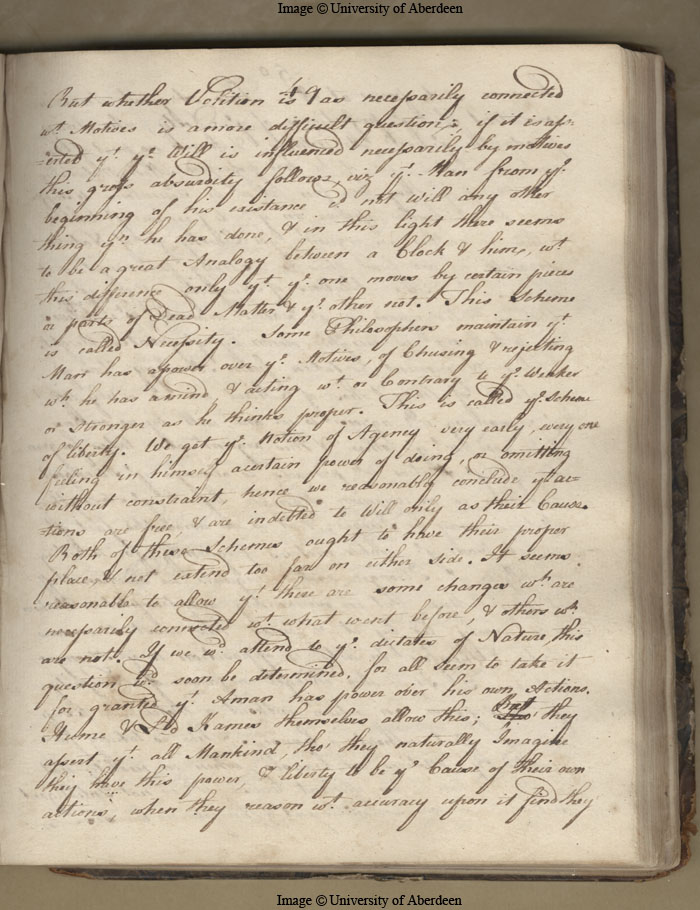 Image © University of Aberdeen
But whether Volition is as necessarily connected
wt. Motives is a more difficult question; if it is as-
-serted yt. ye. Will is influenced necessarily by motives
this gross absurdity follows, viz yt. Man from ye.
beginning of his existance not will any other
thing yn. he has done, & in this light there seems
to be a great Analogy between a Clock & him, wt.
this difference only yt. ye. one moves by certain pieces
or parts of Dead Matter & ye. other not. This Scheme
is called Necessity. Some Philosophers maintain yt.
Man has a power over ye. Motives, of Chusing & rejecting
wh. he has a mind, & acting wt. or Contrary to ye. Weaker
or Stronger as he thinks proper. This is called ye. Scheme
of liberty. We get ye. Notion of Agency very early, every one
feeling in himself a certain power of doing, or omitting
without constraint, hence we reasonably conclude yt. ac-
-tions are free, & are indebted to Will only as their Cause.
Both of these Schemes ought to have their proper
place, & not extend too far on either side. It seems
reasonable to allow yt. there are some changes wh. are
necessarily connected wt. what went before, & others wh.
are not. If we wd. attend to ye. dictates of Nature this
question wd. soon be determined, for all seem to take it
for granted yt. A man has power over his own Actions.
Hume & Ld Kames themselves allow this; But they
assert yt. all Mankind tho' they naturally Imagine
they have this power, & liberty to be ye. Cause of their own
actions, when they reason wt. accuracy upon it find they
Image © University of Aberdeen